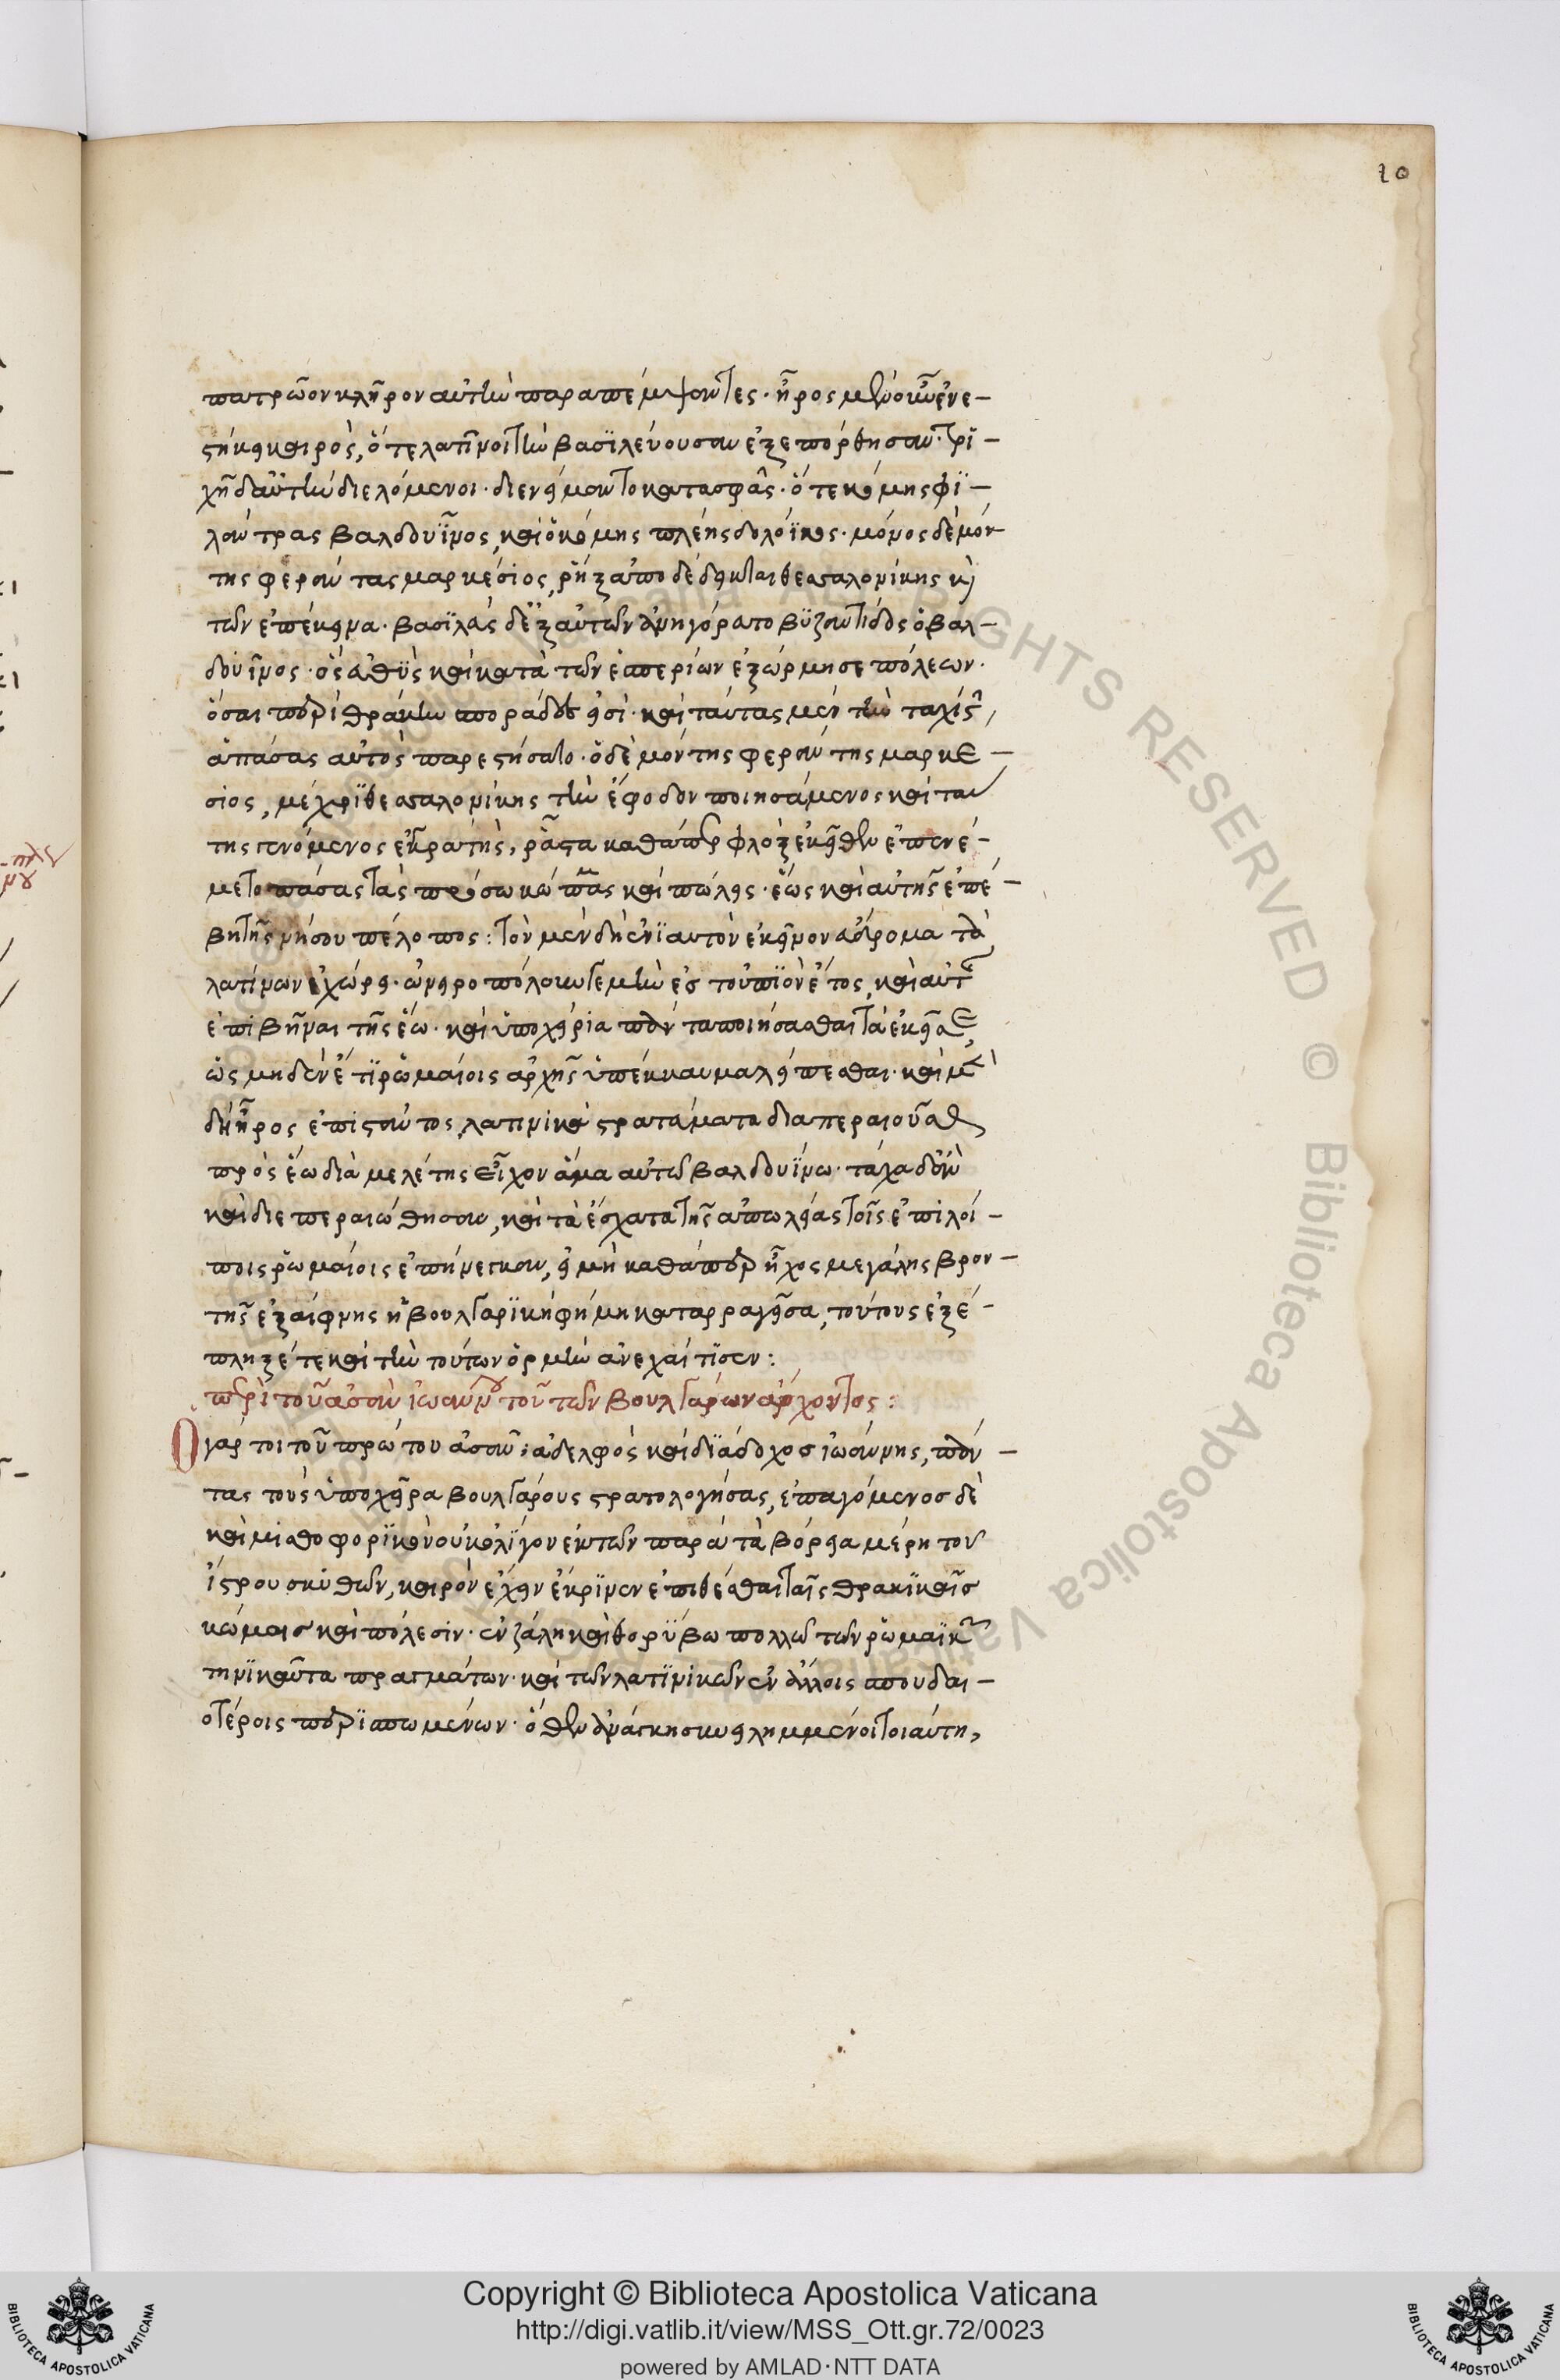 20
πατρῶον κλῆρον αὐτὴν παραπέμψοντες· ἦρος μὲν οὖν ἐνε-
στήκει καιρὸς, ὅτε λατῖνοι τὴν βασϊλεύουσαν ἐξεπόρθησαν· τρι-
χῆ δ' αὐτὴν διελόμενοι· διενείμαντο κατασφᾶς· ὅτε κόμης φϊ-
λάντρας βαλδουϊῖνος, καὶ ὁ κόμης πλέης δολόϊκος· μόνος δὲ μόν
της φεράντας μαρκέσιος, ῥήξ ἀποδέδεικται θεσσαλονίκης κὶ
τῶν ἐπέκεινα· βασϊλεὺς δ' ἐξ αὐτῶν ἀνηγόρευτο βϋζαντίδος ὁ βαλ-
δουῖνος· ὃς εὐθϋς καὶ κατὰ τῶν ἑσπερίων ἐξώρμησε πόλεων·
ὅσαι περὶ θράκην σποράδες εἰσὶ· καὶ ταύτας μὲν τὴν ταχίστ
ἁπάσας αὐτὸς παρεστήσατο· ὁ δὲ μόντης φεράντης μαρκε-
σιος, μέχρϊ θεσσαλονίκης τὴν ἔφοδον ποιησάμενος καὶ ταύ
της γενόμενος ἐγκρατὴς, ῥᾶστα καθάπερ φλὸξ ἐκεῖθεν ἐπενέ-
μετο πάσας τὰς πρόσω κώμας καὶ πόλεις· ἕως καὶ αὐτῆς ἐπέ-
βη τῆς νήσου πέλοπος: τὸν μὲν δὴ ἐνϊαυτὸν ἐκεῖνον εὔδρομα τὰ
λατίνων ἐχώρει· ὠνειροπόλουν γε μὴν ἐς τοὐπϊὸν ἔτος, καὶ αὐτῆς
ἐπιβῆναι τῆς ἕω· καὶ ὑποχείρια πάντα ποιήσασθαι τὰ ἐκεῖσε
ὡς μηδὲν ἔτϊ ῥωμαίοις ἀρχῆς ὑπέκκαυμα λείπεσθαι· καὶ μὲν
δὴ ἦρος ἐπιστάντος, λατινικὰ στρατεύματα διαπεραιοῦσθαι
πρὸς ἕω διὰ μελέτης εἶχον ἅμα αὐτῶ βαλδουϊνω· τάχα δ' ἂν
καὶ διεπεραιώθησαν, καὶ τὰ ἔσχατα τῆς ἀπωλείας τοῖς ἐπιλοί-
ποις ῥωμαίοις ἐπήνεγκαν, εἰ μὴ καθάπερ ἦχος μεγάλης βρον-
τῆς ἐξαίφνης ἡ βουλγαρϊκὴ φήμη καταρραγεῖσα, τούτους ἐξέ-
πληξέ τε καὶ τὴν τούτων ὁρμὴν ἀνεχαίτϊσεν:
περὶ τοῦ ἀσὰν ἰωάννου τοῦ τῶν βουλγάρων ἄρχοντος:
Ο γάρ τοι τοῦ πρώτου ἀσὰν: ἀδελφὸς καὶ διάδοχος ἰωάννης, πάν-
τας τοὺς ὑποχεῖρα βουλγάρους στρατολογήσας, ἐπαγόμενος δὲ
καὶ μισθοφορϊκὸν οὐκ ὀλϊγον ἐκ τῶν παρὰ τὰ βόρεια μέρη τοῦ
ἴστρου σκυθῶν, καιρὸν ἔχειν ἔκρϊνεν ἐπιθέσθαι ταῖς θρακϊκαῖς
κώμαις καὶ πόλεσιν· ἐν ζάλη καὶ θορϋβω πολλῶ τῶν ῥωμαϊκῶν
τηνϊκαῦτα πραγμάτων· καὶ τῶν λατϊνικῶν ἐν ἄλλοις σπουδαι-
οτέροις περϊσπωμένων· ὅθεν ἀνάγκη συνειλημμένοι τοιαύτη,
Copyright © Biblioteca Apostolica Vaticana
http://digi.vatlib.it/view/MSS_Ott.gr.72/0023
powered by AMLAD·NTT DATA